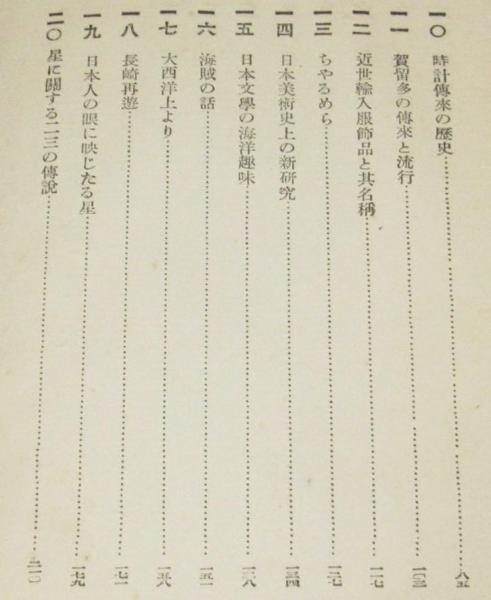 一〇 時計傳來の歷史 八五
一一 賀留多の傳來と流行 一〇三
一二 近世輸入服飾品と其名稱 一一七
一三 ちやるめら 一二七
一四 日本美術史上の新硏究 一三四
一五 日本文學の海洋趣味 一三八
一六 海賊の話 一五一
一七 大西洋上より 一五八
一八 長崎再遊 一七一
一九 日本人の眼に映じたる星 一七九
二〇 星に關する二三の傳說 二一〇